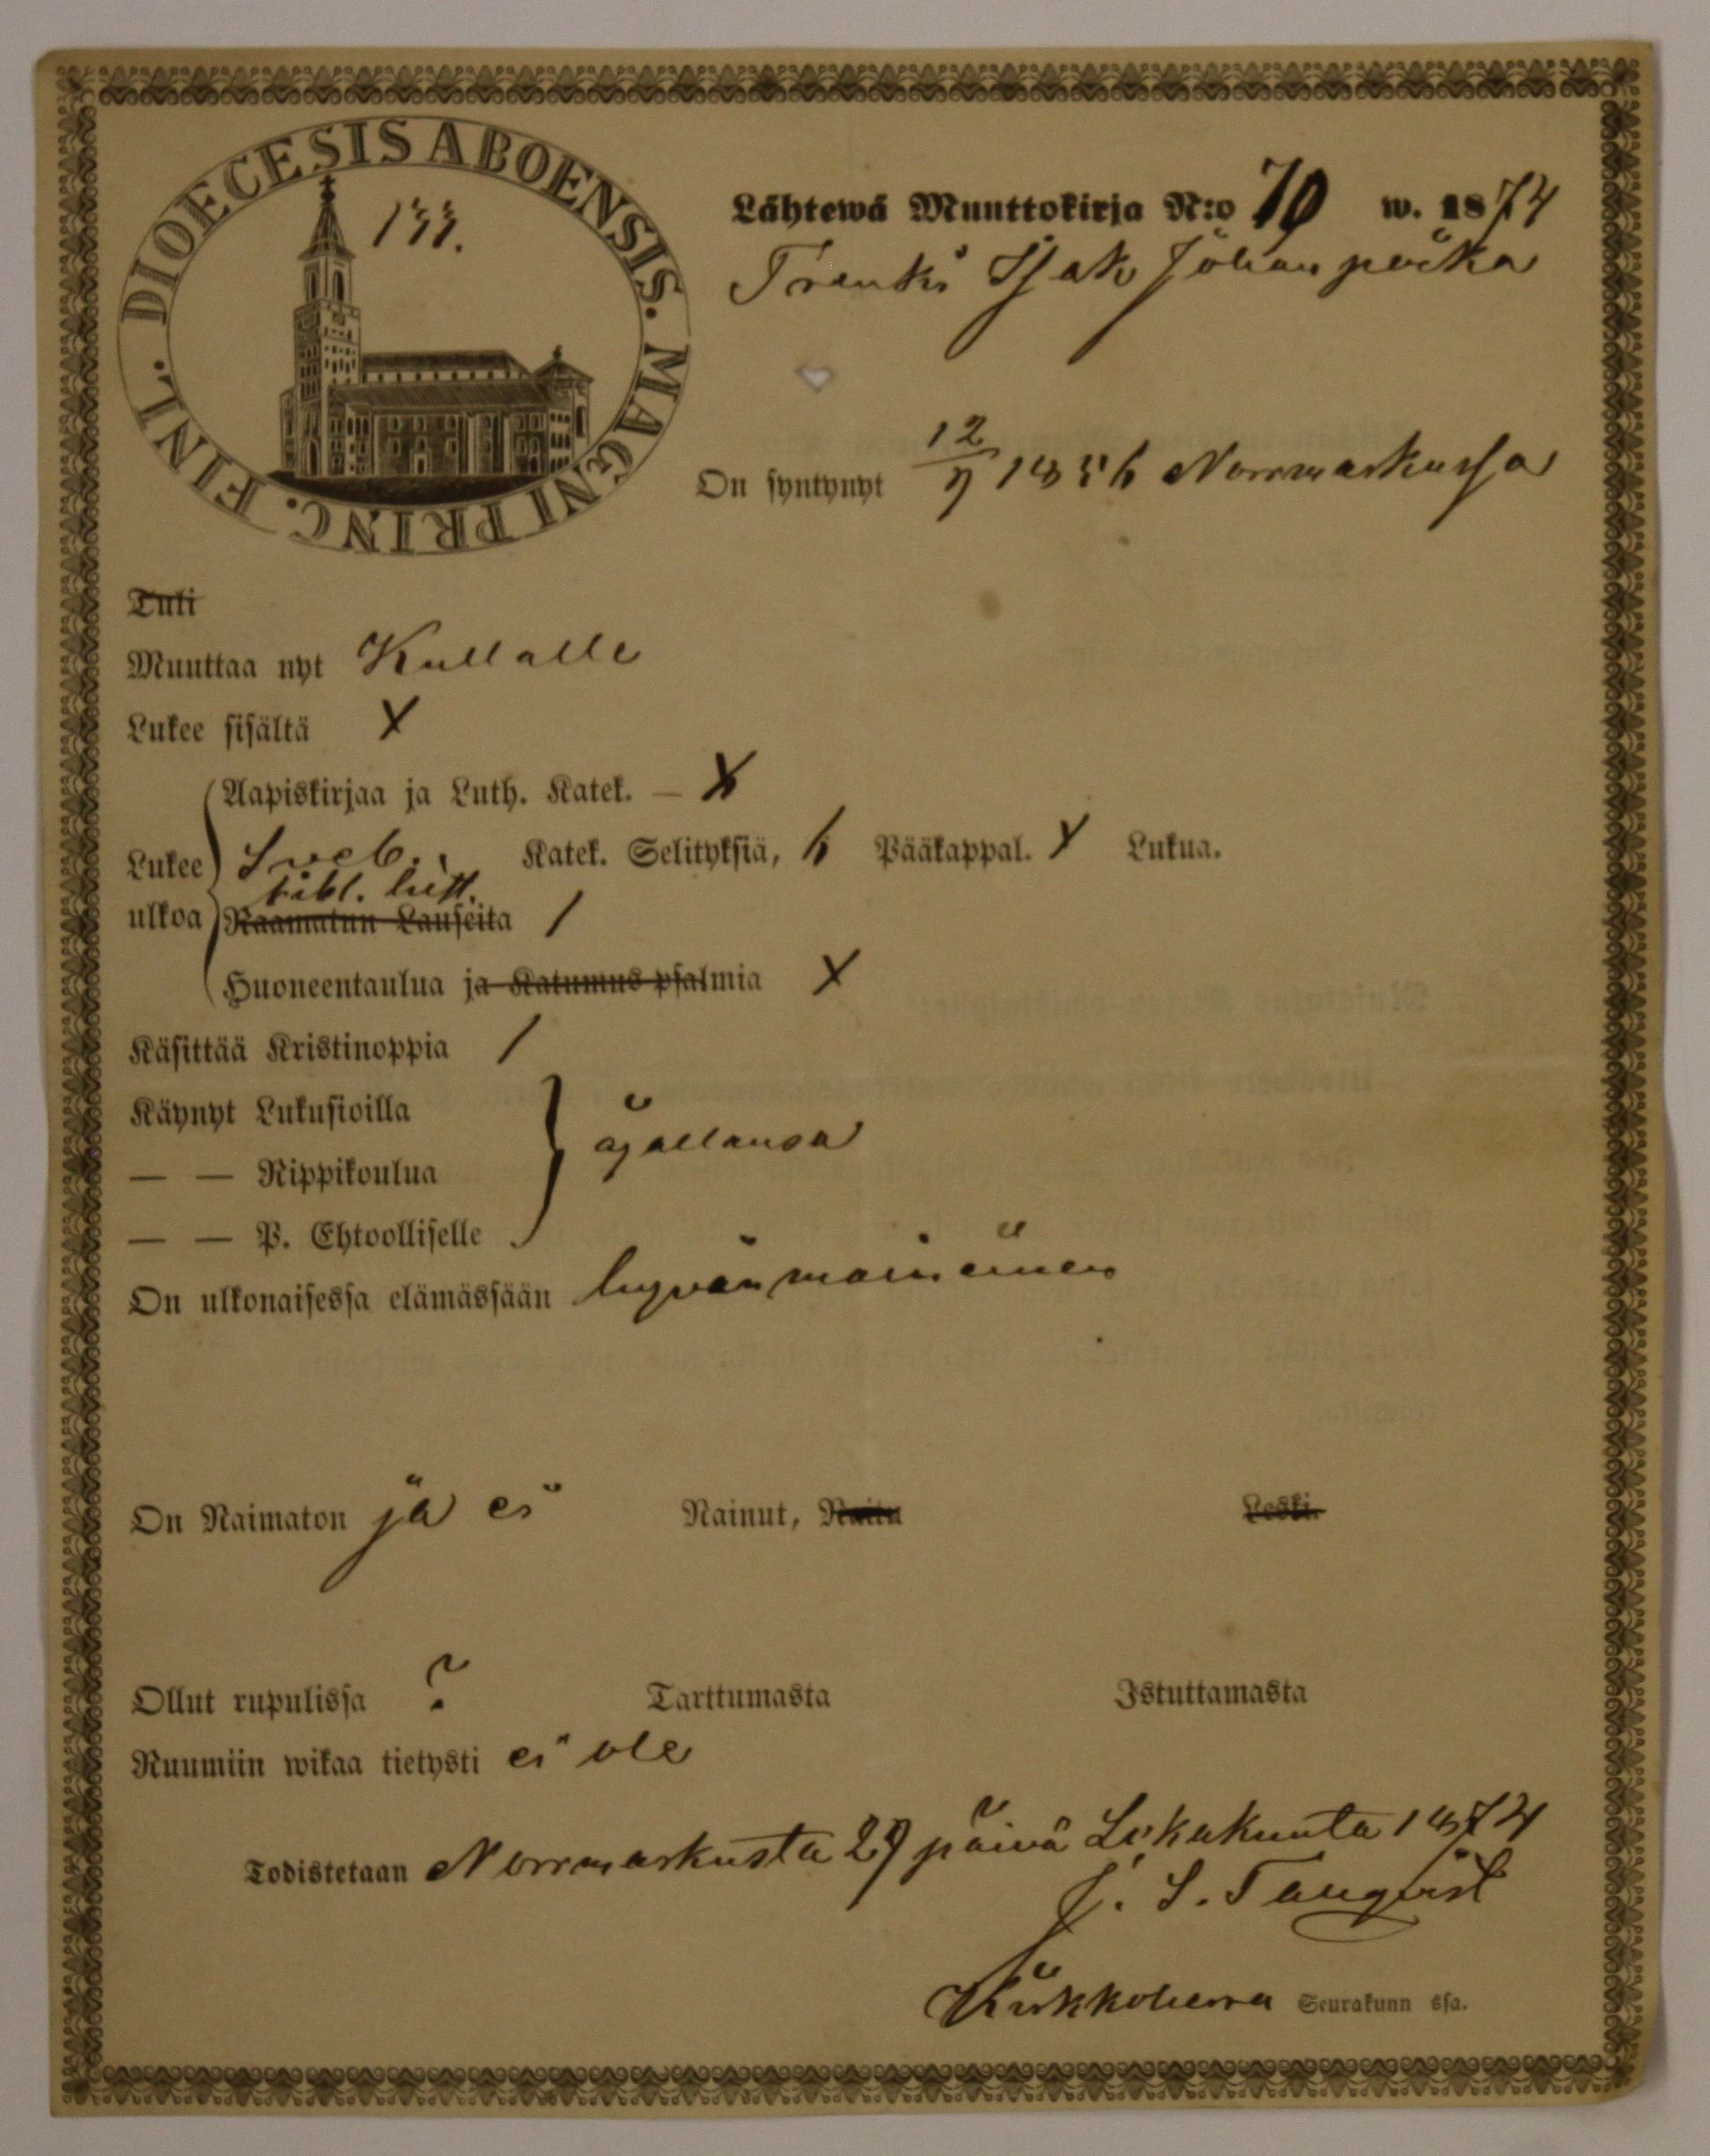 DIOECESIS ABOENSIS. MAGNI PRINC. FINL.
133.
Lähtewä Muuttokirja N:o 70 w. 1874
Trenki Isak Johan poika
On syntynyt 12/7 1856 Norrmarkussa
Tuli
Muuttaa nyt Kullalle
Lukee sisältä X
Aapiskirjaa ja Luth. Katek. — X
Lukee Sveb. Katek. Selityksiä, h Pääkappal. X Lukua.
bibl. hist.
ulkoa Raamatun Lauseita /
Huoneentaulua ja Katumus psalmia X
Käsittää Kristinoppia /
Käynyt Lukusioilla
ajallansa
— — Rippikoulua
— — P. Ehtoolliselle
On ulkonaisessa elämässään hyvänmaineinen
On Naimaton ja ei Nainut, Naitu Leski.
Ollut rupulissa ? Tarttumasta Istuttamasta
Ruumiin wikaa tietysti ei ole
Todistetaan Norrmarkusta 29 päivä Lokakuuta 1874
J. S. Tanqvist
Kirkkoherra Seurakunn ssa.